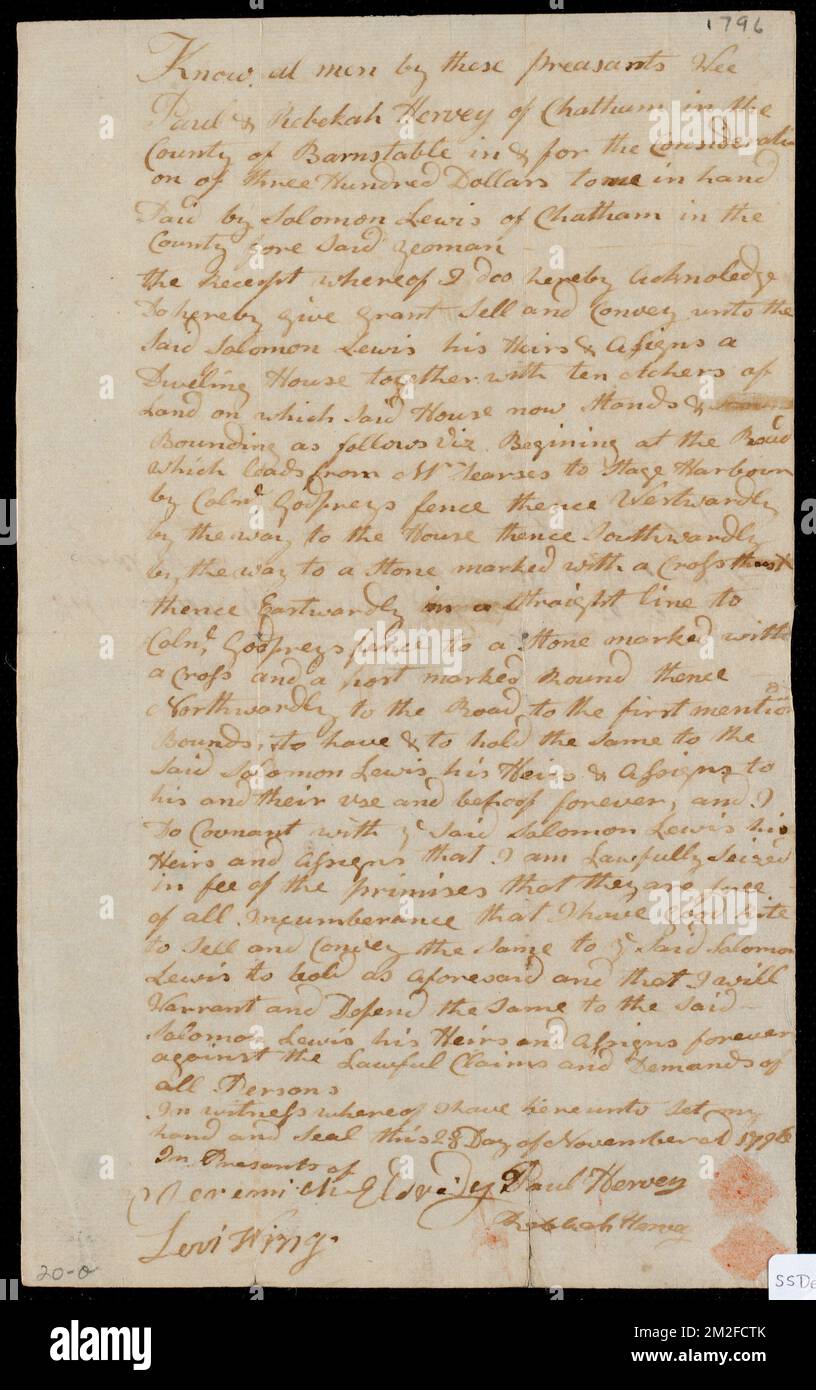 1796
Know al men by these preasants Wee
Paul & Rebekah Hervey of Chatham in the
County of Barnstable in & for the Considerati
on of Three Hundred Dollars to me in hand
Paid by Solomon Lewis of Chatham in the
County fore Said yeoman
the Receipt whereof I doo hereby Acknoledge
Do hereby Give Grant Sell and Convey unto the
Said Solomon Lewis his Heirs & Asigns a
Dweling House together with ten Achers of
Land on which Said House now Stands &
Bounding as follows Viz Begining at the Road
which leads from Mr to Stage Harbour
by Colnl. Godfreys fence thence Westwardly
by the way to the House thence Southwardly
by the way to a Stone marked with a Cross
thence Eastwardly in a Straight line to
Colnl. Godfreys fence to a Stone marked with
a Cross and a post marked Round thence
Northwardly to the Road to the first mention
Bounds, to have & to hold the Same to the
Said Solomon Lewis his Heirs & Assigns to
his and their use and behoof forever, and I
Do Covnant with ye Said Solomon Lewis his
Heirs and Assigns that I am Lawfully Seized
in fee of the primises that they are free
of all Incumberance that I have Good rite
to Sell and Convey the Same to ye Said Solomon
Lewis to hold as aforesaid and that I will
Warrant and Defend the Same to the Said
Solomon Lewis his Heirs and Assigns forever
against the Lawful Claims and Demands of
all Persons
In witness whereof I have hereunto Set my
hand and Seal this 28 Day of November AD 1796
In Presants of
Jeremiah Eldridg Paul Hervey
Rebekah Hervey
Levi Wing
20-0
SSDe
alamy
Image ID: 2M2FCTK
www.alamy.com